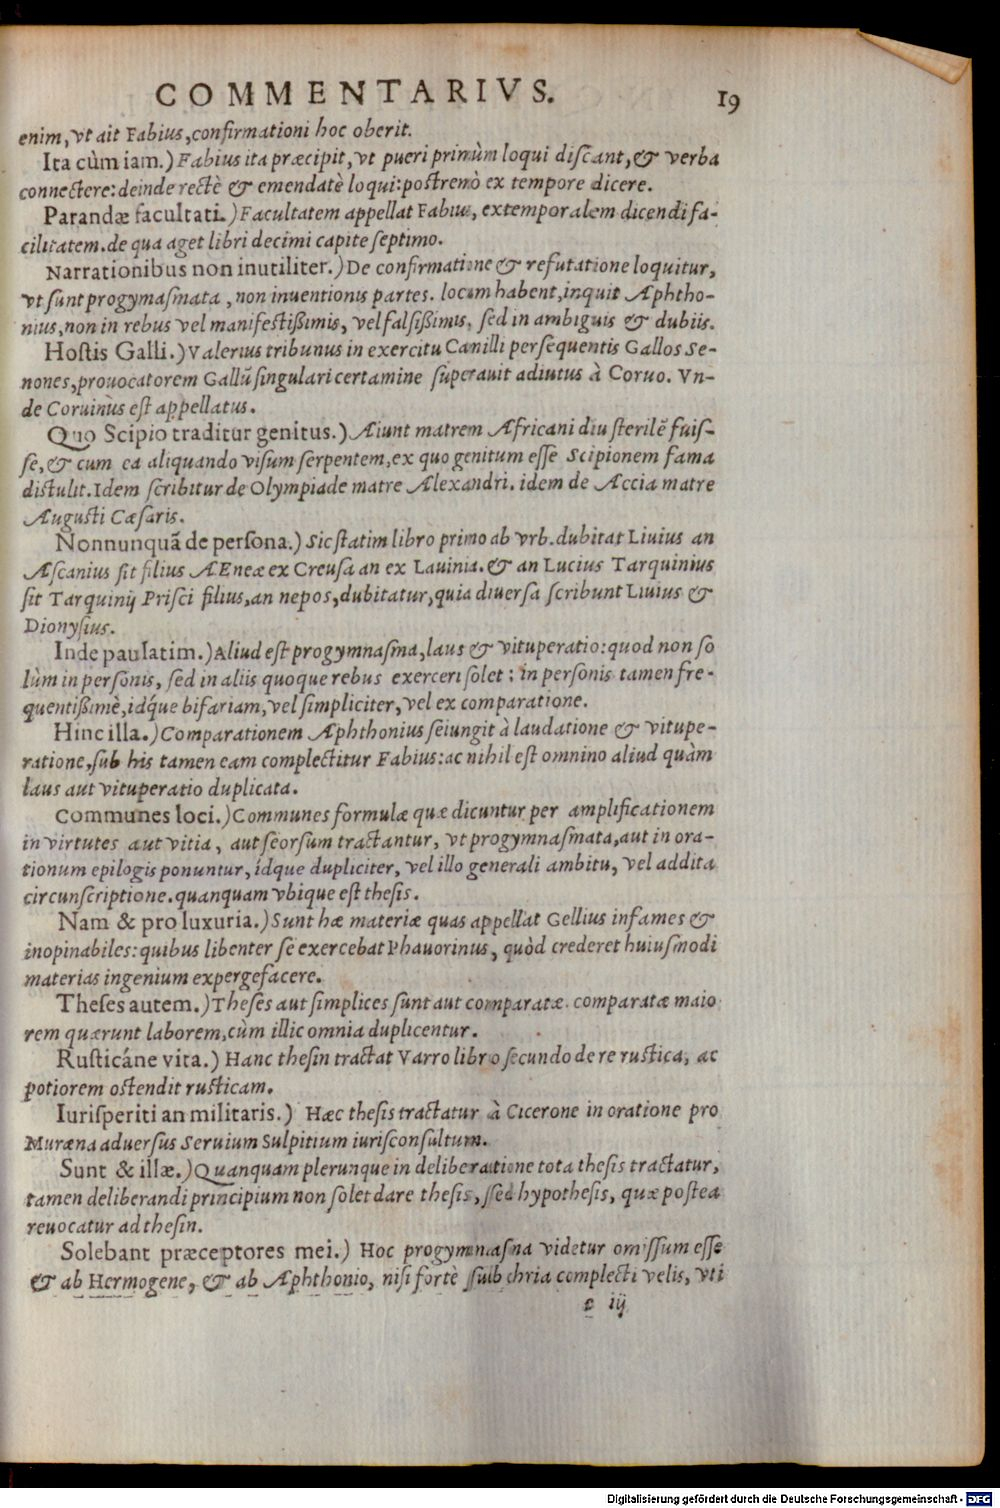 COMMENTARIVS. 19
enim, vt ait Fabius, confirmationi hoc oberit.
Ita cùm iam.) Fabius ita præcipit, vt pueri primùm loqui discant, & verba
connectere: deinde rectè & emendatè loqui: postremò ex tempore dicere.
Parandæ facultati.) Facultatem appellat Fabius, extemporalem dicendi fa-
cilitatem. de qua aget libri decimi capite septimo.
Narrationibus non inutiliter.) De confirmatione & refutatione loquitur,
vt sunt progymasmata, non inuentionis partes. locum habent, inquit Aphtho-
nius, non in rebus vel manifestißimis, vel falsißimis, sed in ambiguis & dubiis.
Hostis Galli.) Valerius tribunus in exercitu Camilli persequentis Gallos Se-
nones, prouocatorem Gallũ singulari certamine superauit adiutus à Coruo. Vn-
de Coruinus est appellatus.
Quo Scipio traditur genitus.) Aiunt matrem Africani diu sterilẽ fuis-
se, & cum ea aliquando visum serpentem, ex quo genitum esse Scipionem fama
distulit. Idem scribitur de Olympiade matre Alexandri. idem de Accia matre
Augusti Cæsaris.
Nonnunquã de persona.) Sic statim libro primo ab vrb. dubitat Liuius an
Ascanius sit filius AEneæ ex Creusa an ex Lauinia. & an Lucius Tarquinius
sit Tarquinij Prisci filius, an nepos, dubitatur, quia diuersa scribunt Liuius &
Dionysius.
Inde paulatim.) Aliud est progymnasma, laus & vituperatio: quod non so
lùm in personis, sed in aliis quoque rebus exerceri solet: in personis tamen fre-
quentißimè, idq́ue bifariam, vel simpliciter, vel ex comparatione.
Hinc illa.) Comparationem Aphthonius seiungit à laudatione & vitupe-
ratione, sub his tamen eam complectitur Fabius: ac nihil est omnino aliud quàm
laus aut vituperatio duplicata.
Communes loci.) Communes formulæ quæ dicuntur per amplificationem
in virtutes aut vitia, aut seorsum tractantur, vt progymnasmata, aut in ora-
tionum epilogis ponuntur, idque dupliciter, vel illo generali ambitu, vel addita
circunscriptione. quanquam vbique est thesis.
Nam & pro luxuria.) Sunt hæ materiæ quas appellat Gellius infames &
inopinabiles: quibus libenter se exercebat Phauorinus, quòd crederet huiusmodi
materias ingenium expergefacere.
Theses autem.) Theses aut simplices sunt aut comparatæ. comparatæ maio
rem quærunt laborem, cùm illic omnia duplicentur.
Rusticáne vita.) Hanc thesin tractat Varro libro secundo de re rustica, ac
potiorem ostendit rusticam.
Iurisperiti an militaris.) Hæc thesis tractatur à Cicerone in oratione pro
Muræna aduersus Seruium Sulpitium iurisconsultum.
Sunt & illæ.) Quanquam plerunque in deliberatione tota thesis tractatur,
tamen deliberandi principium non solet dare thesis, sed hypothesis, quæ postea
reuocatur ad thesin.
Solebant præceptores mei.) Hoc progymnasma videtur omissum esse
& ab Hermogene, & ab Aphthonio, nisi fortè sub chria complecti velis, vti
c iij
Digitalisierung gefördert durch die Deutsche Forschungsgemeinschaft - DFG